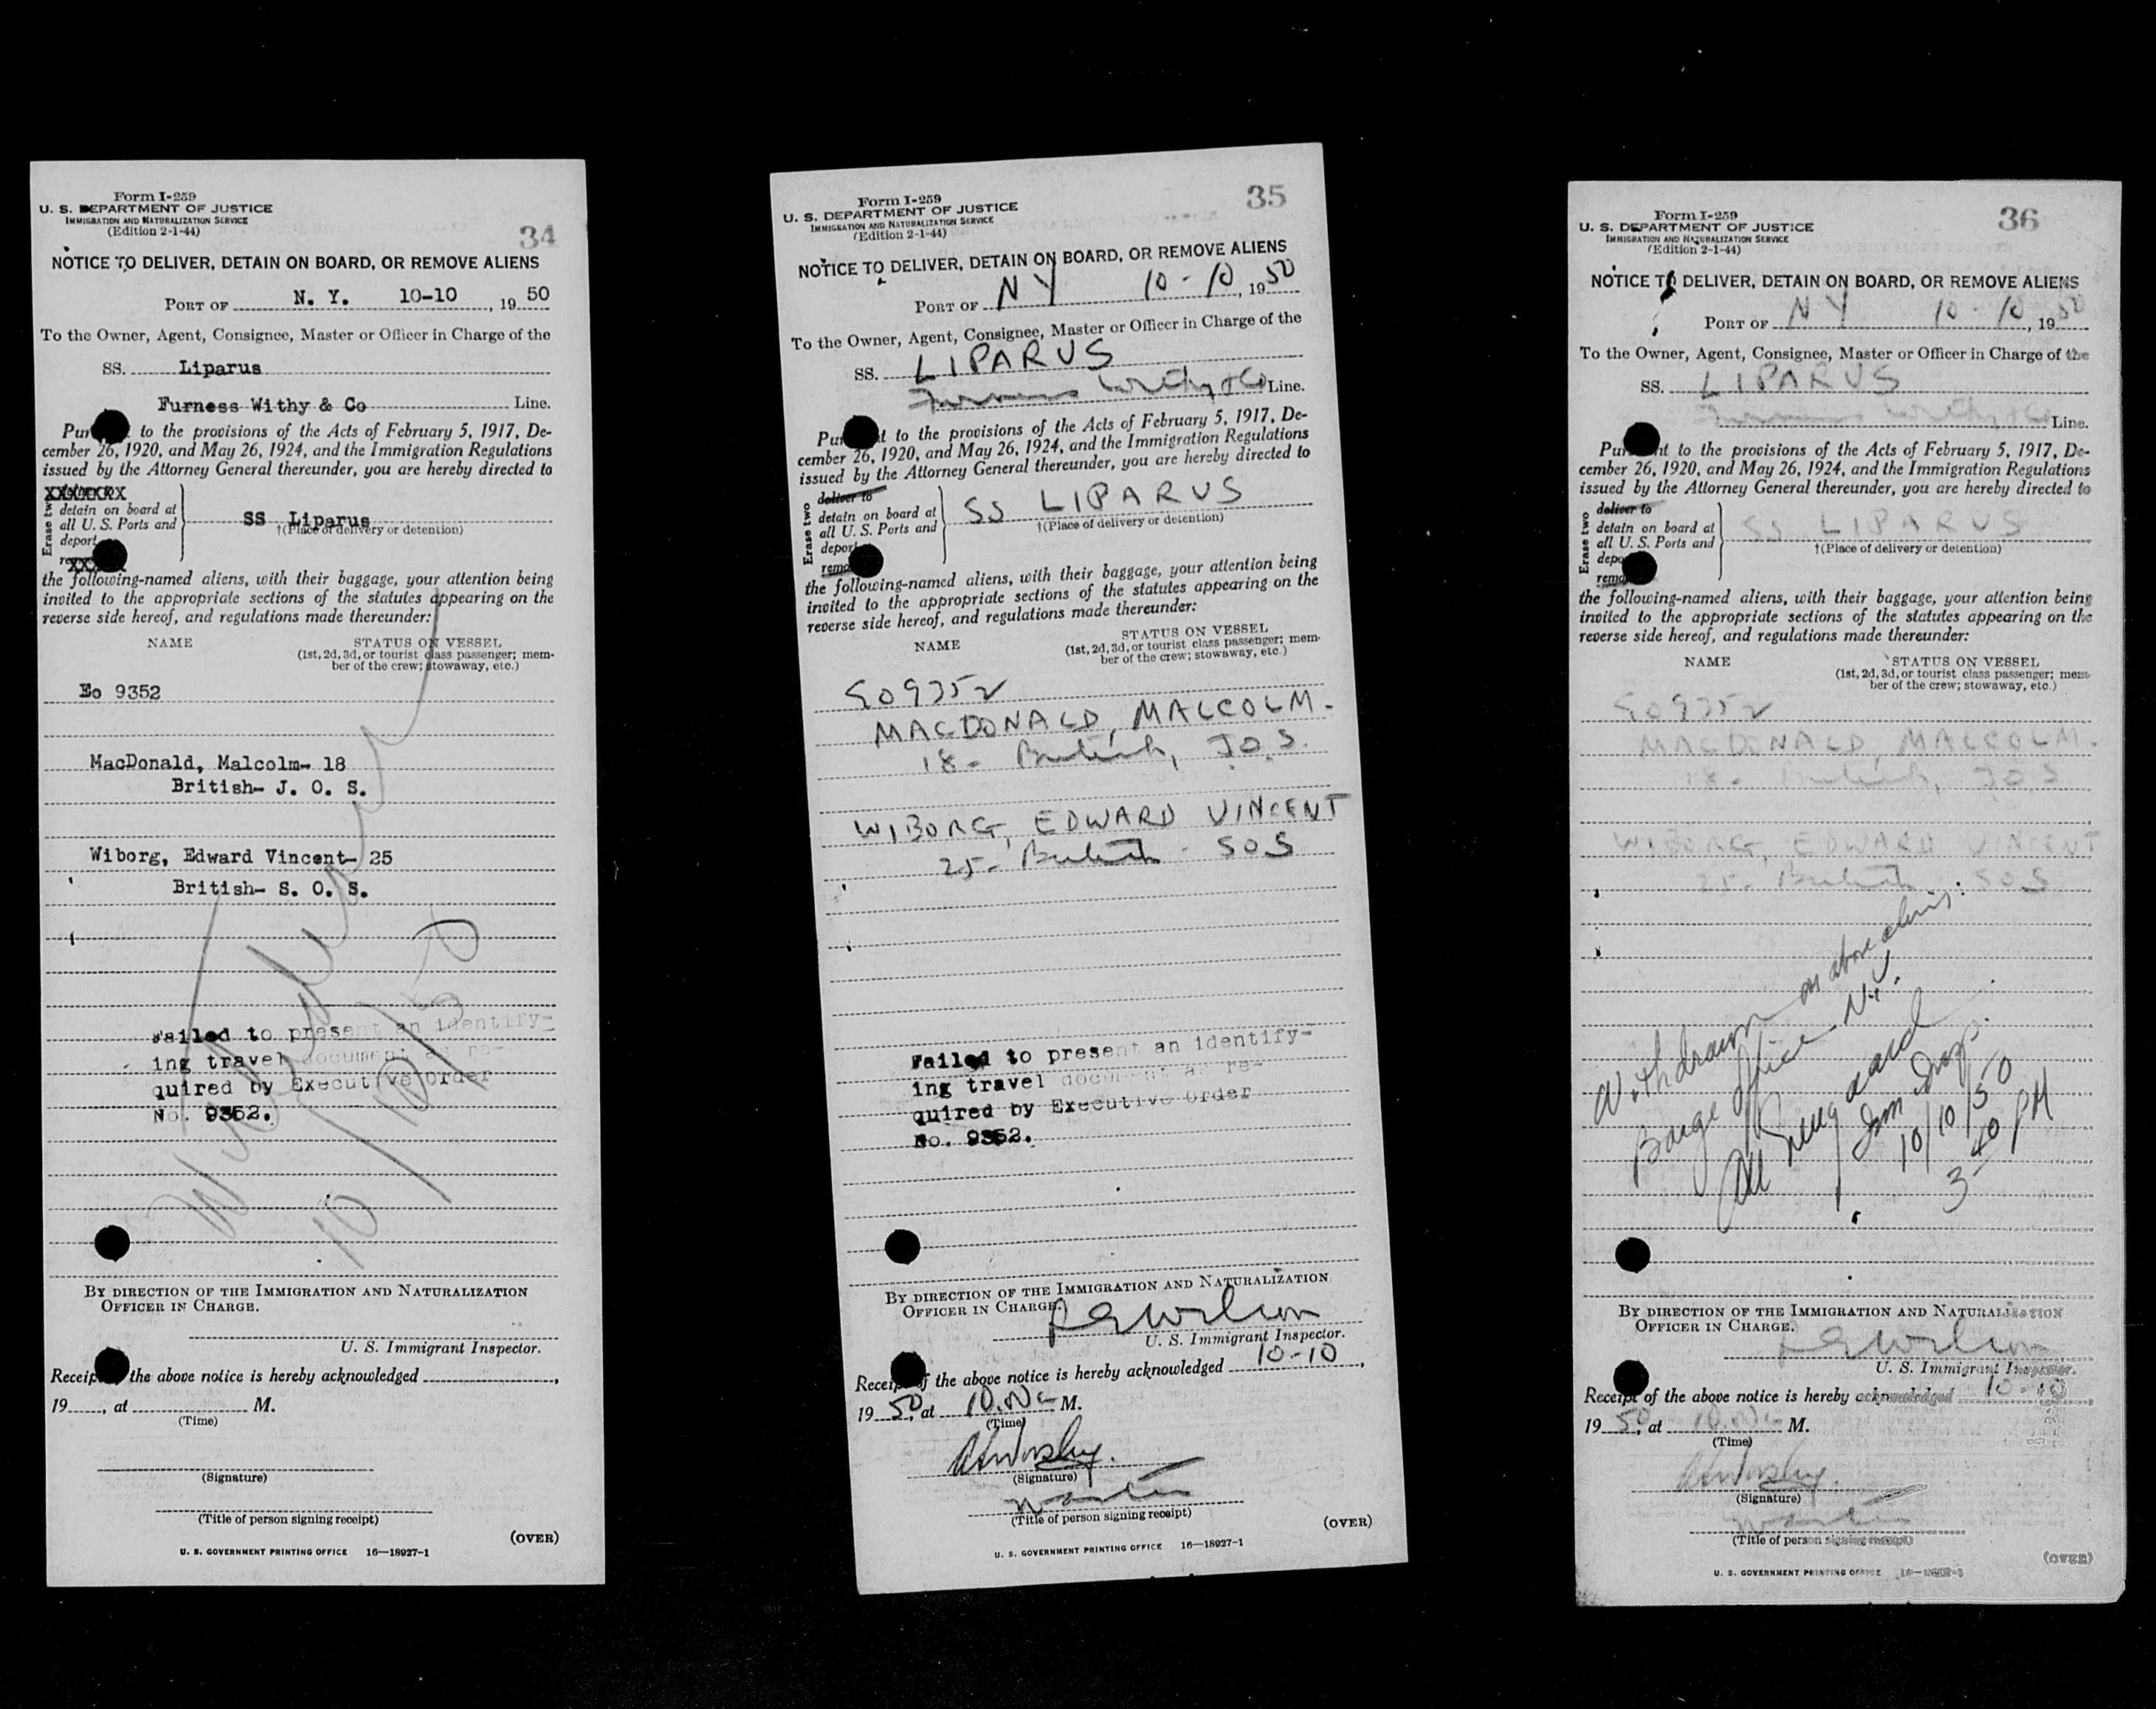 Form I-259
U. S. DEPARTMENT OF JUSTICE
IMMIGRATION AND NATURALIZATION SERVICE
(Edition 2-1-44)
34
NOTICE TO DELIVER, DETAIN ON BOARD, OR REMOVE ALIENS
PORT OF N. Y. 10-10, 19 50
To the Owner, Agent, Consignee, Master or Officer in Charge of the
SS. Liparus
Furness Withy & Co Line.
to the provisions of the Acts of February 5, 1917, De-
cember 26, 1920, and May 26, 1924, and the Immigration Regulations
issued by the Attorney General thereunder, you are hereby directed to
XXXXXXX
Erase two
detain on board at
all U. S. Ports and
deport
SS Liparus
†(Place of delivery or detention)
the following-named aliens, with their baggage, your attention being
invited to the appropriate sections of the statutes appearing on the
reverse side hereof, and regulations made thereunder:
NAME STATUS ON VESSEL
(1st, 2d, 3d, or tourist class passenger; mem-
ber of the crew; stowaway, etc.)
Eo 9352
MacDonald, Malcolm- 18
British- J. O. S.
Wiborg, Edward Vincent- 25
British- S. O. S.
Failed to present an identify-
ing travel document as re-
quired by Executive Order
No. 9352.
10/10/50
BY DIRECTION OF THE IMMIGRATION AND NATURALIZATION
OFFICER IN CHARGE.
U. S. Immigrant Inspector.
the above notice is hereby acknowledged ,
19 , at M.
(Time)
(Signature)
(Title of person signing receipt)
(OVER)
U. S. GOVERNMENT PRINTING OFFICE 16—18927-1
Form I-259
U. S. DEPARTMENT OF JUSTICE
IMMIGRATION AND NATURALIZATION SERVICE
(Edition 2-1-44)
35
NOTICE TO DELIVER, DETAIN ON BOARD, OR REMOVE ALIENS
PORT OF N Y 10-10, 19 50
To the Owner, Agent, Consignee, Master or Officer in Charge of the
SS. LIPARUS
Furness Withy & Co Line.
to the provisions of the Acts of February 5, 1917, De-
cember 26, 1920, and May 26, 1924, and the Immigration Regulations
issued by the Attorney General thereunder, you are hereby directed to
deliver to
Erase two
detain on board at
all U. S. Ports and
deport
SS LIPARUS
†(Place of delivery or detention)
the following-named aliens, with their baggage, your attention being
invited to the appropriate sections of the statutes appearing on the
reverse side hereof, and regulations made thereunder:
NAME STATUS ON VESSEL
(1st, 2d, 3d, or tourist class passenger; mem-
ber of the crew; stowaway, etc.)
EO 9352
MACDONALD, MALCOLM.
18- British, J.O.S.
WIBORG, EDWARD VINCENT
25- British - SOS
Failed to present an identify-
ing travel document as re-
quired by Executive Order
No. 9352.
BY DIRECTION OF THE IMMIGRATION AND NATURALIZATION
OFFICER IN CHARGE.
Wilson
U. S. Immigrant Inspector.
of the above notice is hereby acknowledged 10-10,
19 50, at M.
(Time)
(Signature)
Master
(Title of person signing receipt)
(OVER)
U. S. GOVERNMENT PRINTING OFFICE 16—18927-1
Form I-259
U. S. DEPARTMENT OF JUSTICE
IMMIGRATION AND NATURALIZATION SERVICE
(Edition 2-1-44)
36
NOTICE TO DELIVER, DETAIN ON BOARD, OR REMOVE ALIENS
PORT OF N Y 10-10, 19 50
To the Owner, Agent, Consignee, Master or Officer in Charge of the
SS. LIPARUS
Furness Withy & Co Line.
to the provisions of the Acts of February 5, 1917, De-
cember 26, 1920, and May 26, 1924, and the Immigration Regulations
issued by the Attorney General thereunder, you are hereby directed to
deliver to
Erase two
detain on board at
all U. S. Ports and
SS LIPARUS
†(Place of delivery or detention)
the following-named aliens, with their baggage, your attention being
invited to the appropriate sections of the statutes appearing on the
reverse side hereof, and regulations made thereunder:
NAME STATUS ON VESSEL
(1st, 2d, 3d, or tourist class passenger; mem-
ber of the crew; stowaway, etc.)
EO 9352
MACDONALD, MALCOLM.
18- British, J.O.S
WIBORG, EDWARD VINCENT
25- British SOS
Withdrawn on above aliens.
Barge Office - N.Y.
Imm Insp.
10/10/50
3-40 PM
BY DIRECTION OF THE IMMIGRATION AND NATURALIZATION
OFFICER IN CHARGE.
Wilson
U. S. Immigrant Inspector.
Receipt of the above notice is hereby acknowledged 10-10
19 50, at M.
(Time)
(Signature)
Master
(Title of person signing receipt)
(OVER)
U. S. GOVERNMENT PRINTING OFFICE 16—18927-1